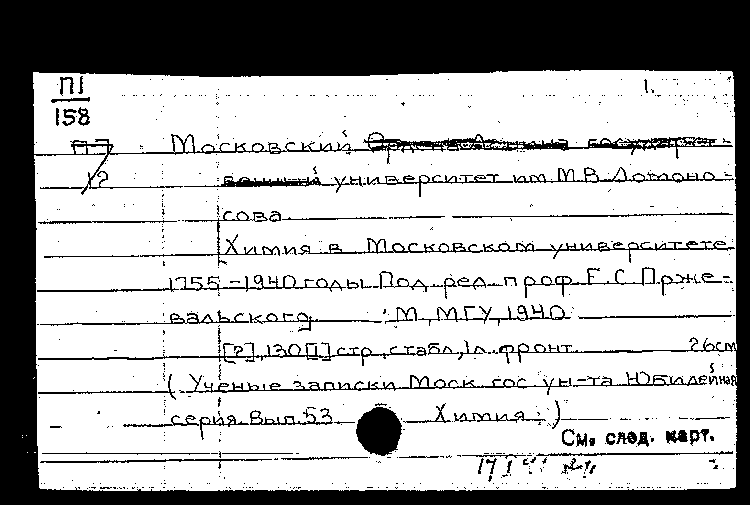 П1
1.
158
Московский Ордена Ленина государст-
П7
венный университет им. М.В. Ломоно-
12
сова.
Химия в Московском университете
1755-1940 годы. Под. ред. проф. Е.С. Прже-
вальского. М., МГУ, 1940.
[2], 130 [1] стр., с табл., 1 л. фронт. 26см
(Ученые записки Моск. гос. ун-та. Юбилейная
серия. Вып. 53. Химия.)
См. след. карт.